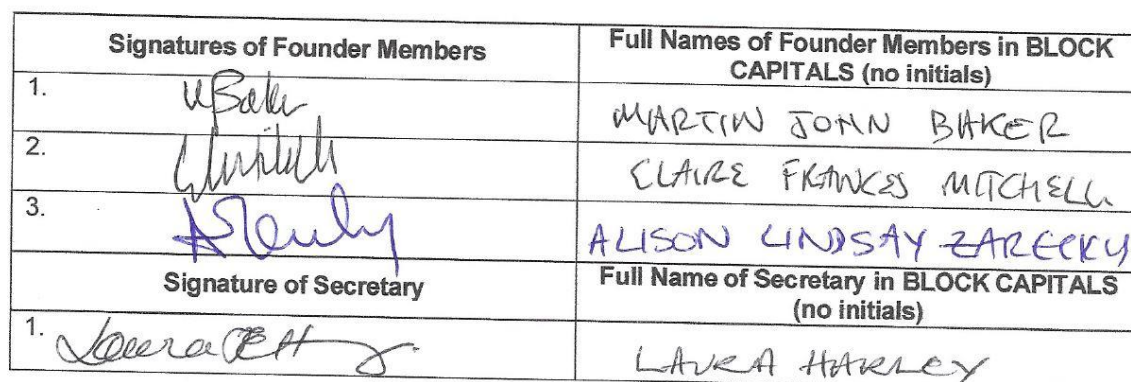 Signatures of Founder Members
Full Names of Founder Members in BLOCK
CAPITALS (no initials)
1.
MARTIN JOHN BAKER
2.
CLAIRE FRANCES MITCHELL
3.
ALISON LINDSAY ZARECKY
Signature of Secretary
Full Name of Secretary in BLOCK CAPITALS
(no initials)
1.
LAURA HARLEY